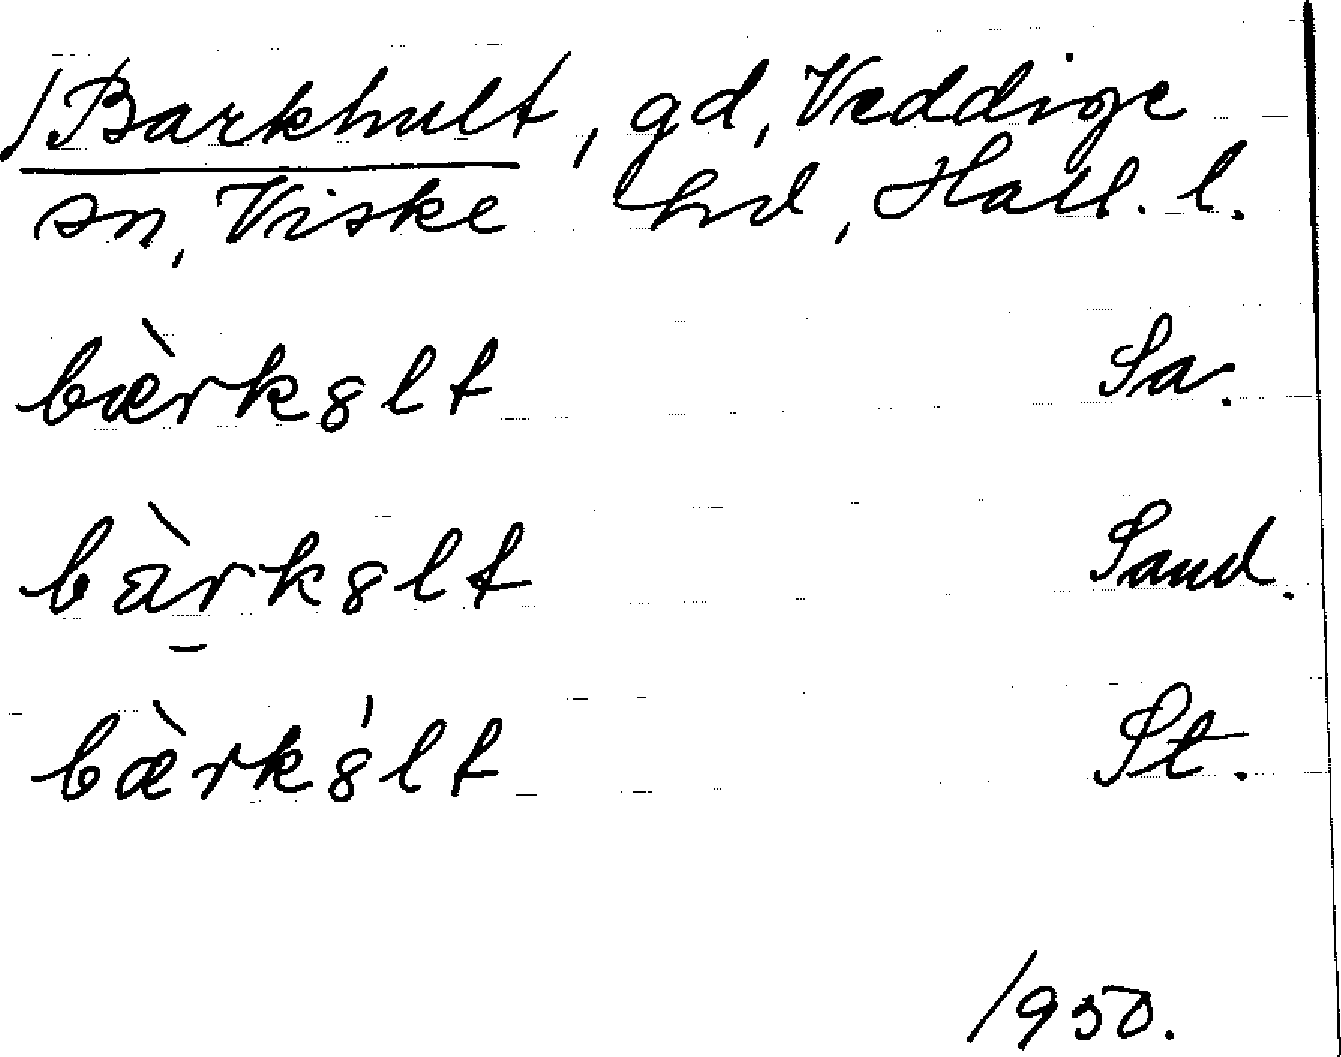 /Barkhult, gd, Veddige
sn, Viske hd, Hall. l.
bæ̀rk8lt Sa.
bàr̠k8lt Sand.
bæ̀rk8́lt St.
1950.